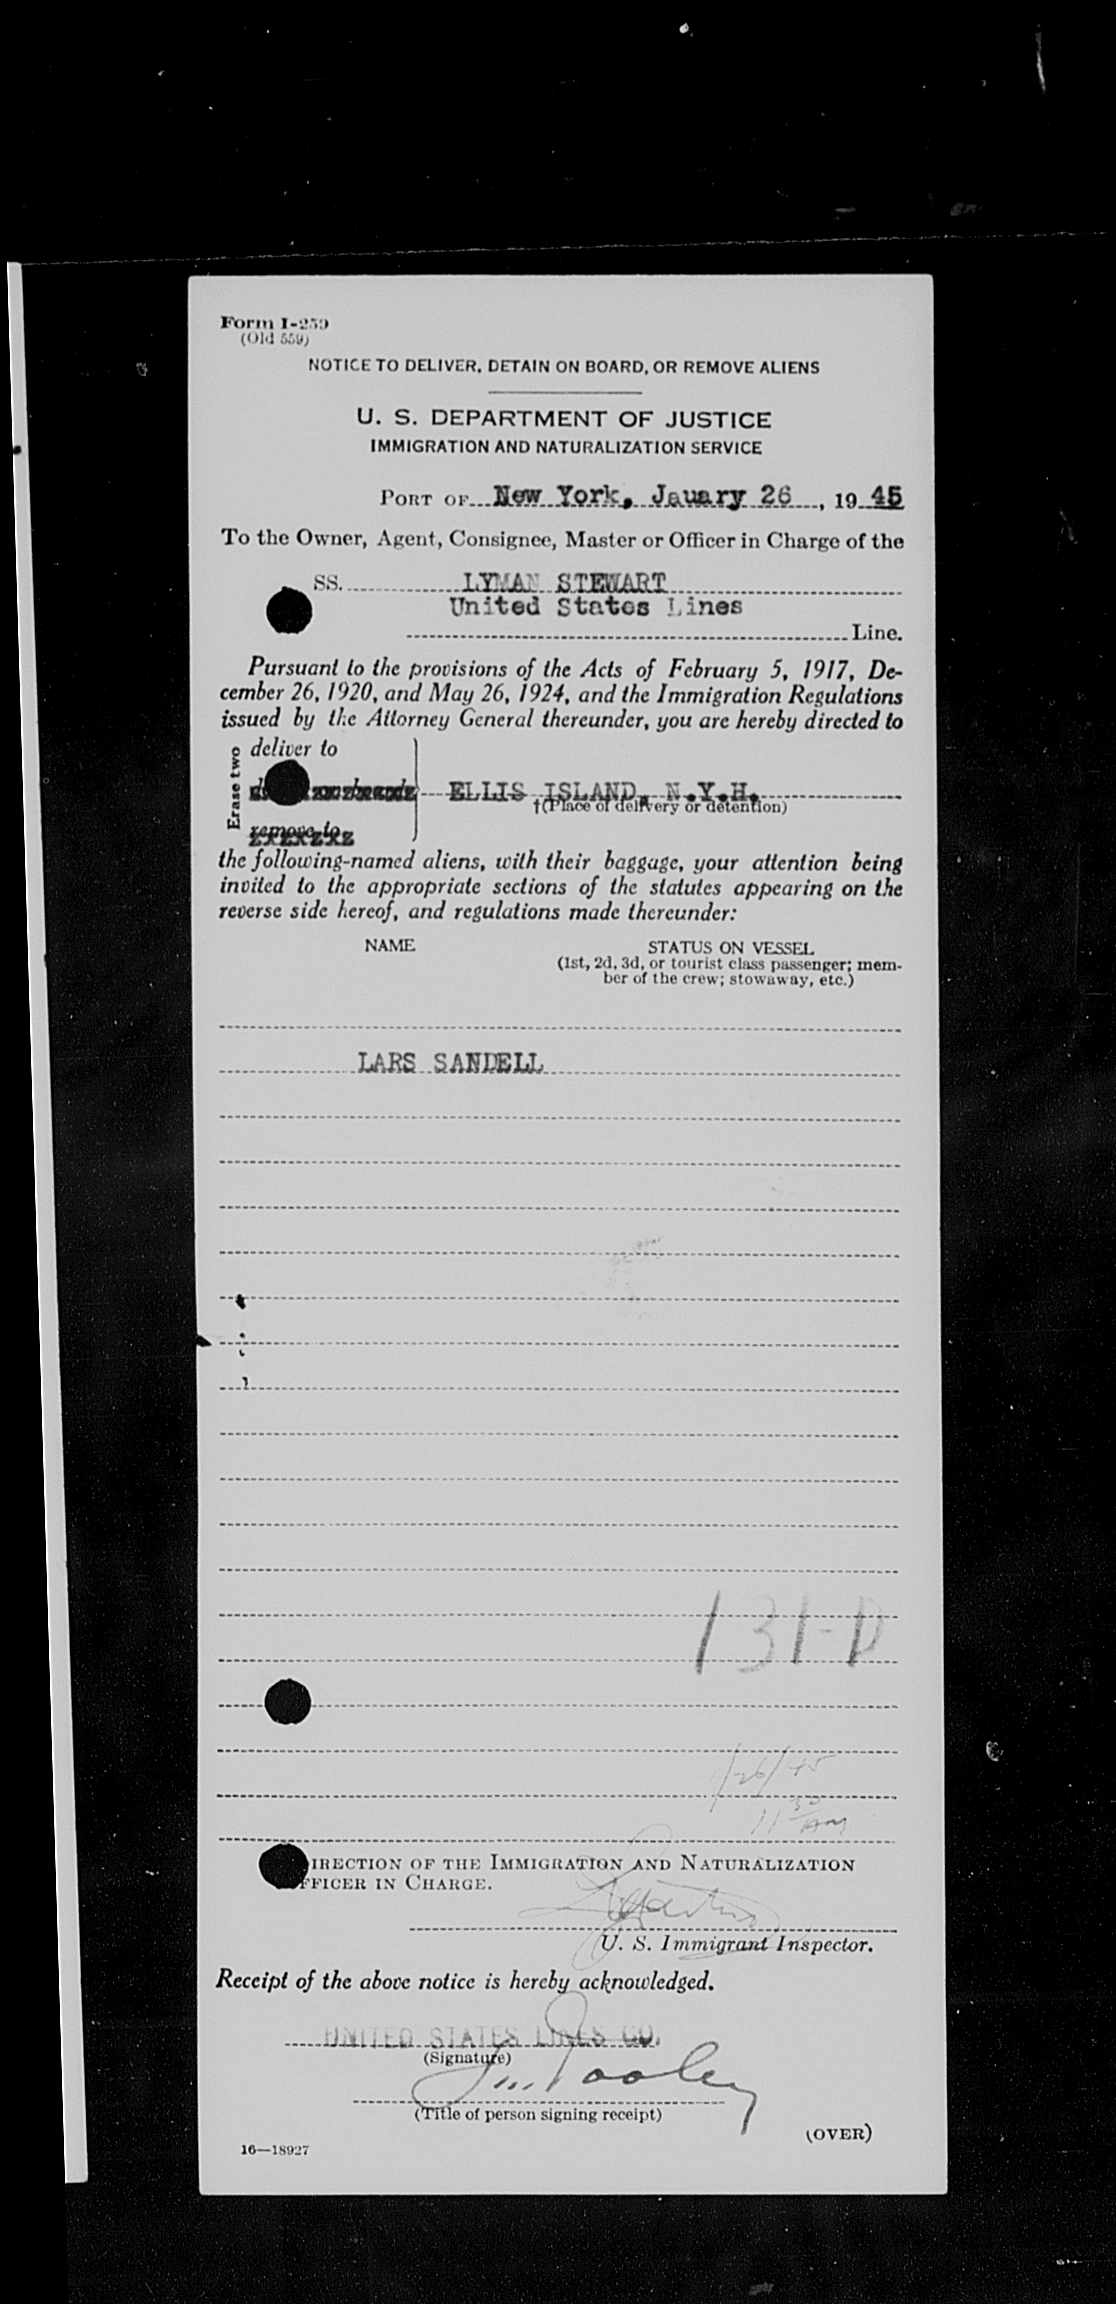 Form I-259
(Old 559)
NOTICE TO DELIVER, DETAIN ON BOARD, OR REMOVE ALIENS
U. S. DEPARTMENT OF JUSTICE
IMMIGRATION AND NATURALIZATION SERVICE
PORT OF New York, Jauary 26, 19 45
To the Owner, Agent, Consignee, Master or Officer in Charge of the
SS. LYMAN STEWART
United States Lines
Line.
Pursuant to the provisions of the Acts of February 5, 1917, De-
cember 26, 1920, and May 26, 1924, and the Immigration Regulations
issued by the Attorney General thereunder, you are hereby directed to
Erase two
deliver to
ELLIS ISLAND, N.Y.H.
†(Place of delivery or detention)
remove to
the following-named aliens, with their baggage, your attention being
invited to the appropriate sections of the statutes appearing on the
reverse side hereof, and regulations made thereunder:
NAME STATUS ON VESSEL
(1st, 2d, 3d, or tourist class passenger; mem-
ber of the crew; stowaway, etc.)
LARS SANDELL
131-D
1/26/45
11 30 AM
IRECTION OF THE IMMIGRATION AND NATURALIZATION
FFICER IN CHARGE.
U. S. Immigrant Inspector.
Receipt of the above notice is hereby acknowledged.
UNITED STATES LINES CO.
(Signature)
(Title of person signing receipt)
(OVER)
16—18927